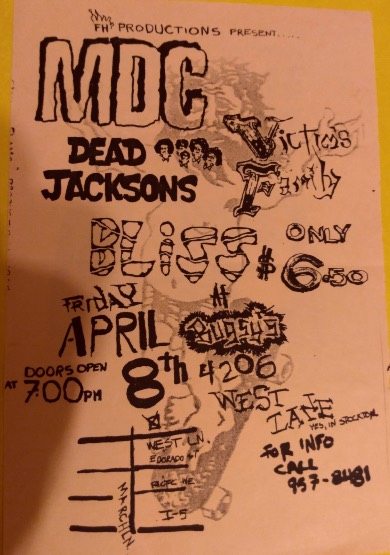 FH PRODUCTIONS PRESENT.....
MDC
DEAD
JACKSONS
Victims
Family
BLISS
ONLY
$6.50
FRIDAY
APRIL
8th
AT
Bugsy's
4206
WEST
LANE
YES, IN STOCKTON
DOORS OPEN
AT 7:00PM
WEST LN.
PACIFIC AVE
I-5
MARCH LN.
FOR INFO
CALL
957-8481